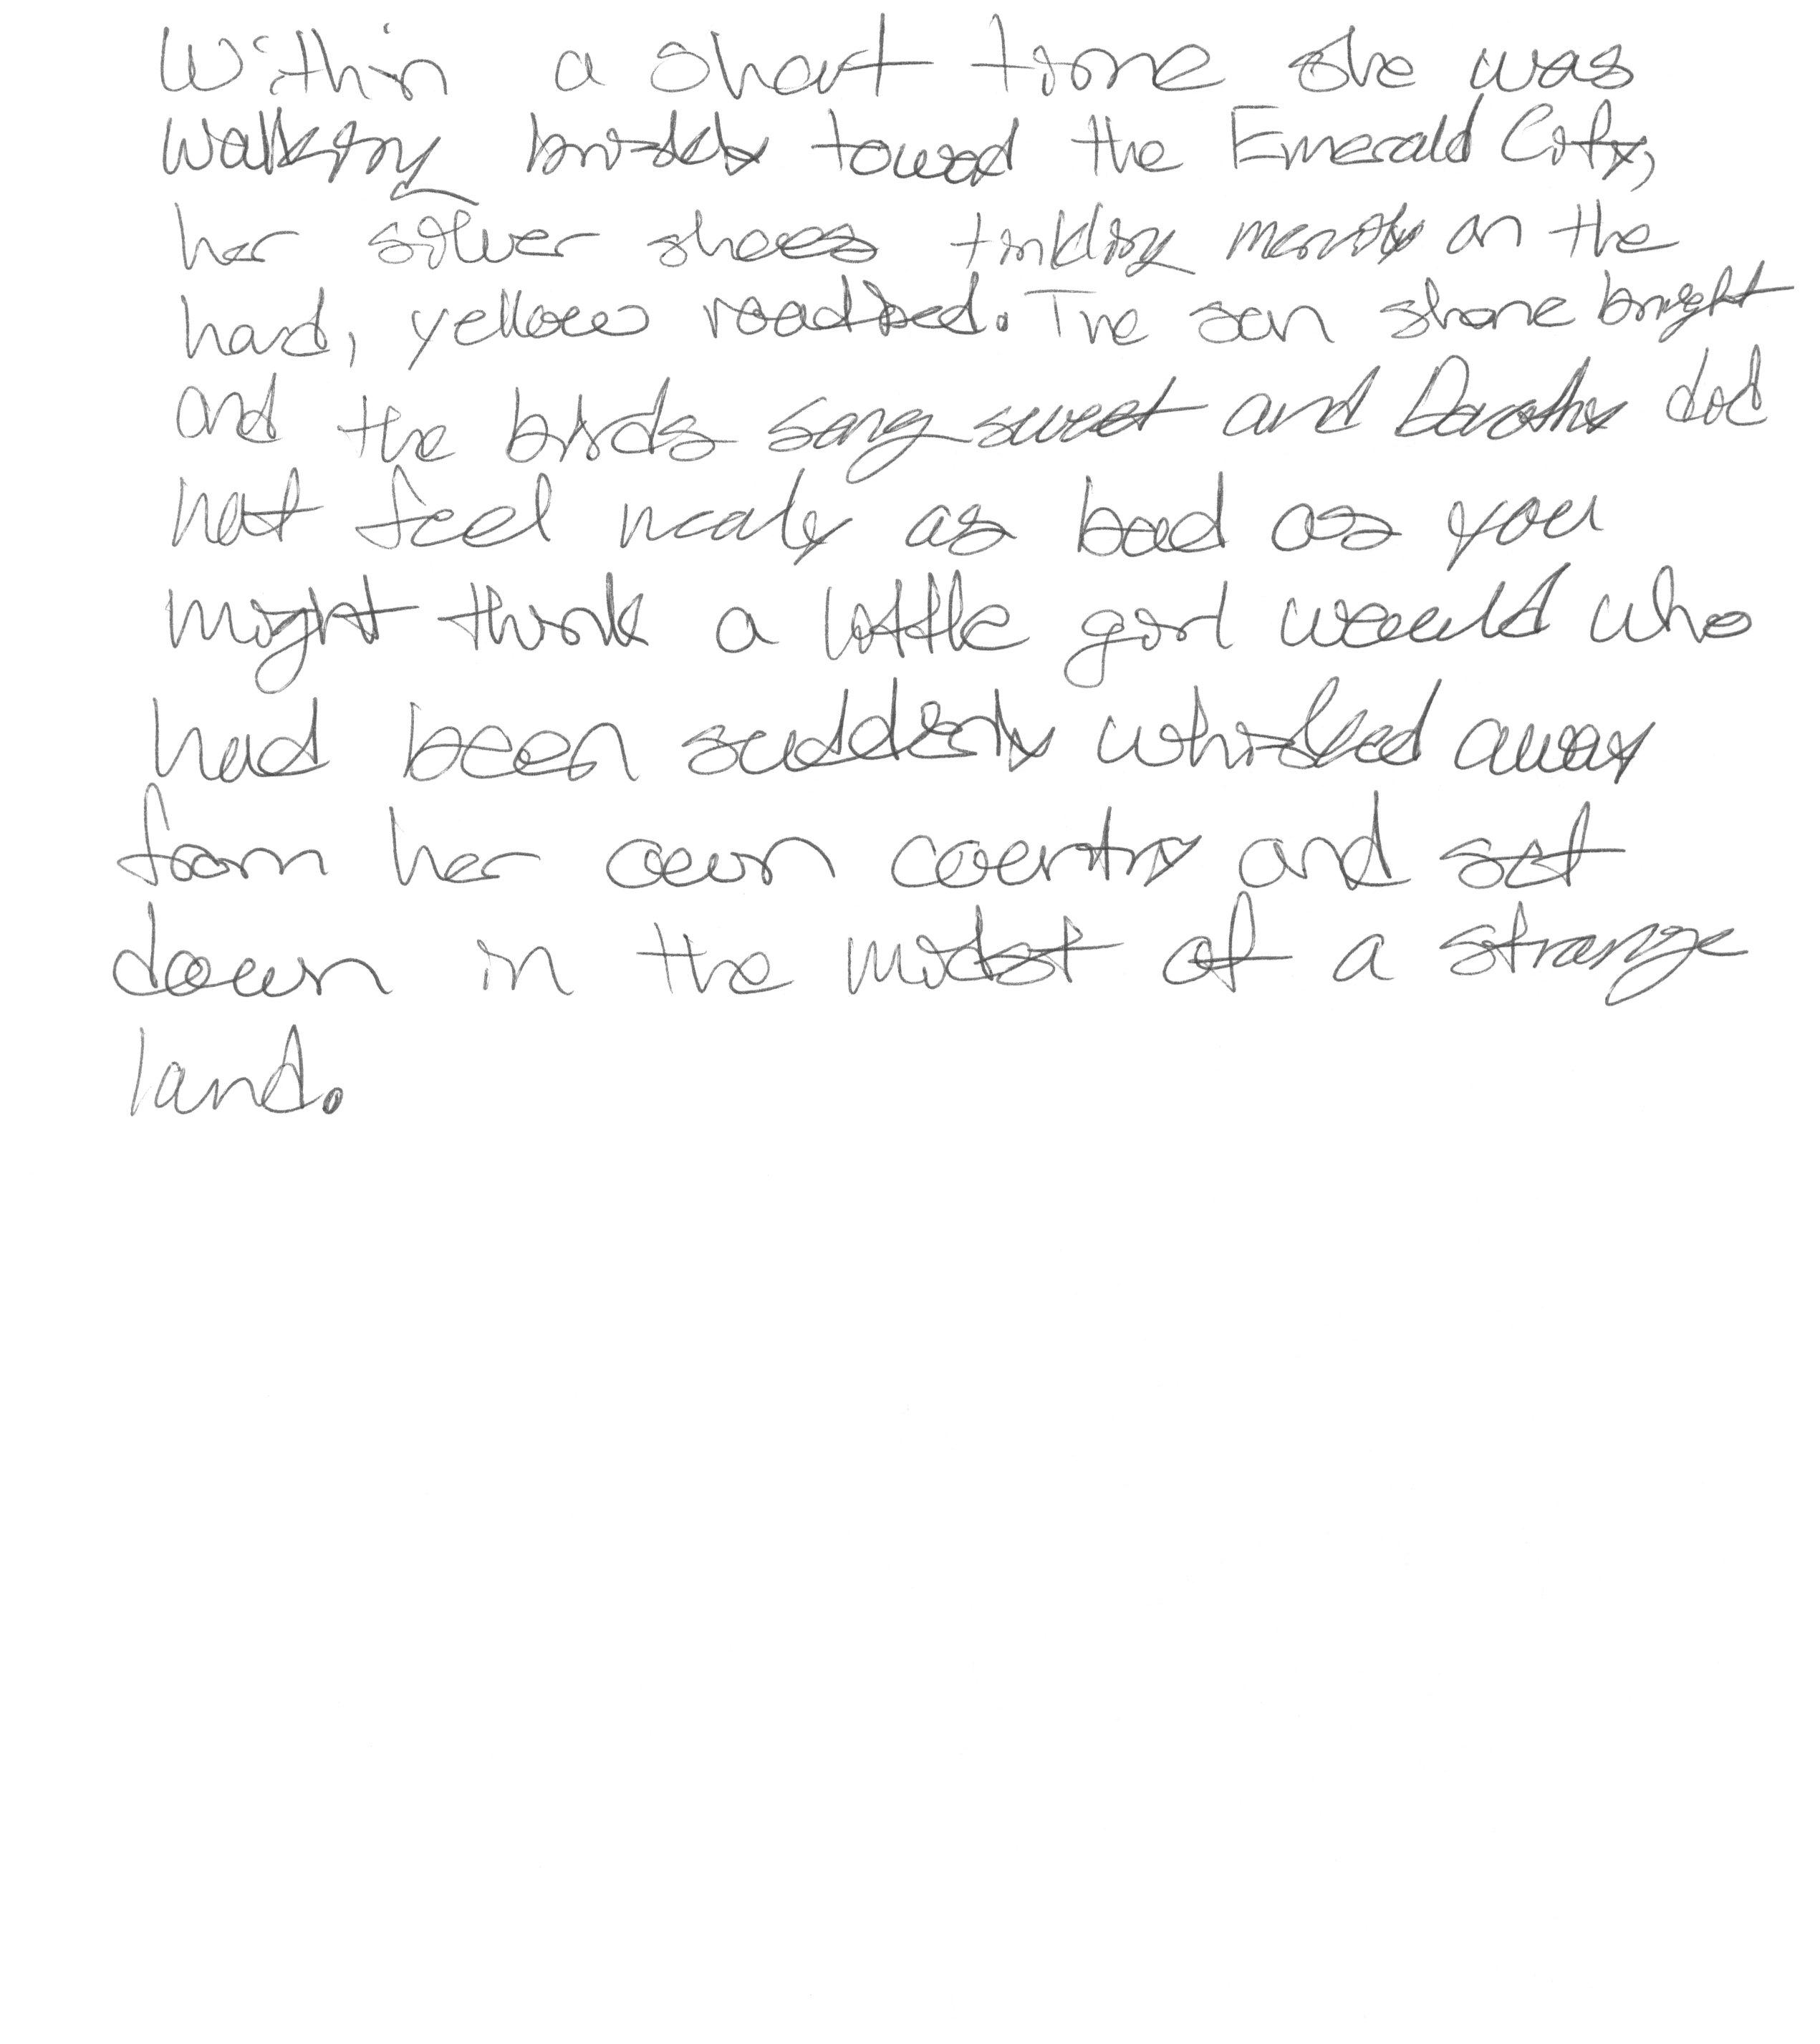 Within a short time she was
walking briskly toward the Emerald City,
her silver shoes tinkling merrily on the
hard, yellow roadbed. The sun shone bright
and the birds sang sweet and Dorothy did
not feel nearly as bad as you
might think a little girl would who
had been suddenly whisked away
from her own country and set
down in the midst of a strange
land.